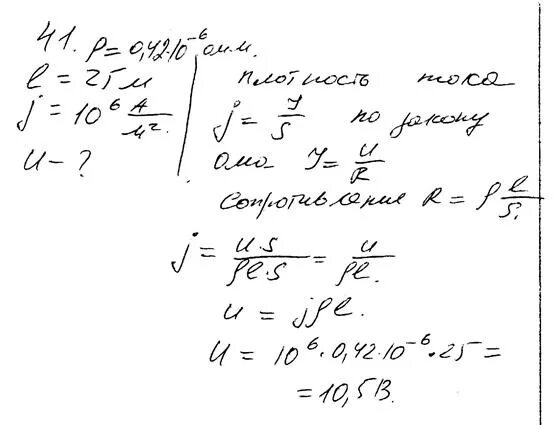 41. ρ = 0,42·10⁻⁶ ом.м.
l = 25 м
j = 10⁶ А/м².
U - ?
плотность тока
j = I/S по закону
ома I = U/R
Сопротивление R = ρ l/S.
j = U·S/ρl·S = U/ρl.
U = jρl.
U = 10⁶·0,42·10⁻⁶·25 =
= 10,5 В.